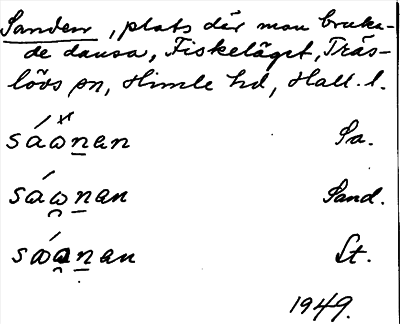 Sanden, plats där man bruka-
de dansa, Fiskeläget, Träs-
lövs sn, Himle hd, Hall. l.
sáωnan Sa.
sáωnan Sand.
sáanan St.
1949.